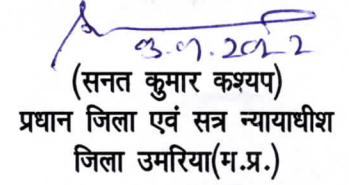 (सनत कुमार कश्यप)
प्रधान जिला एवं सत्र न्यायाधीश
जिला उमरिया(म.प्र.)